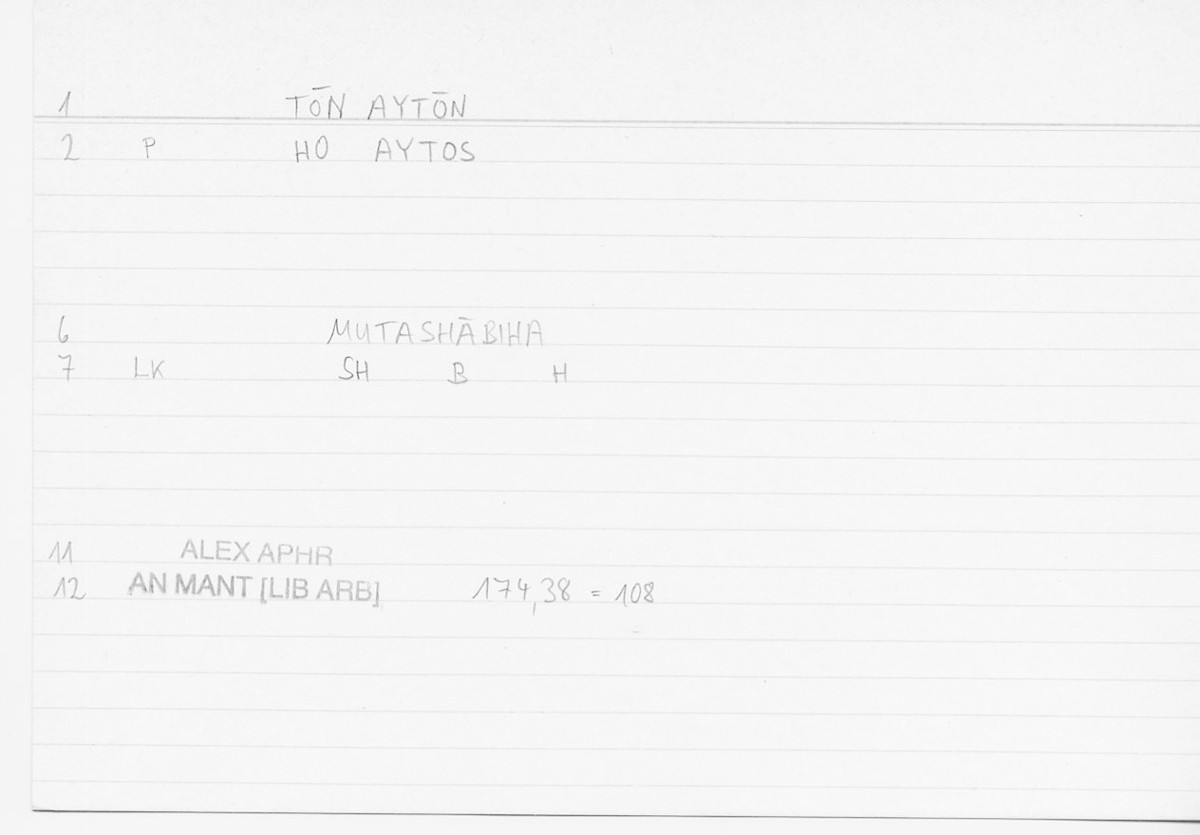 1 TŌN AYTŌN
2 P HO AYTOS
6 MUTASHĀBIHA
7 LK SH B H
11 ALEX APHR
12 AN MANT [LIB ARB] 174,38 = 108